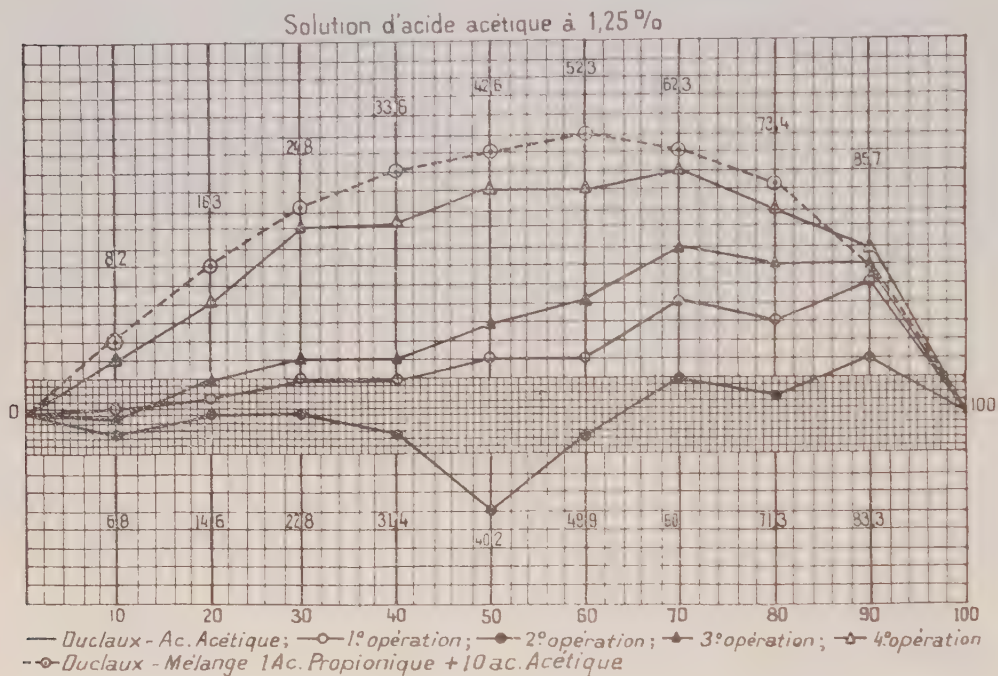 Solution d'acide acétique à 1,25 %
52,3
42,6
62,3
33,6
73,4
24,8
85,7
16,3
8,2
0
100
6,8
14,6
22,8
31,4
40,2
49,9
60
71,3
83,3
10 20 30 40 50 60 70 80 90 100
Duclaux - Ac. Acétique; 1e opération; 2e opération; 3e opération; 4e opération
Duclaux - Mélange 1 Ac. Propionique + 10 ac. Acétique